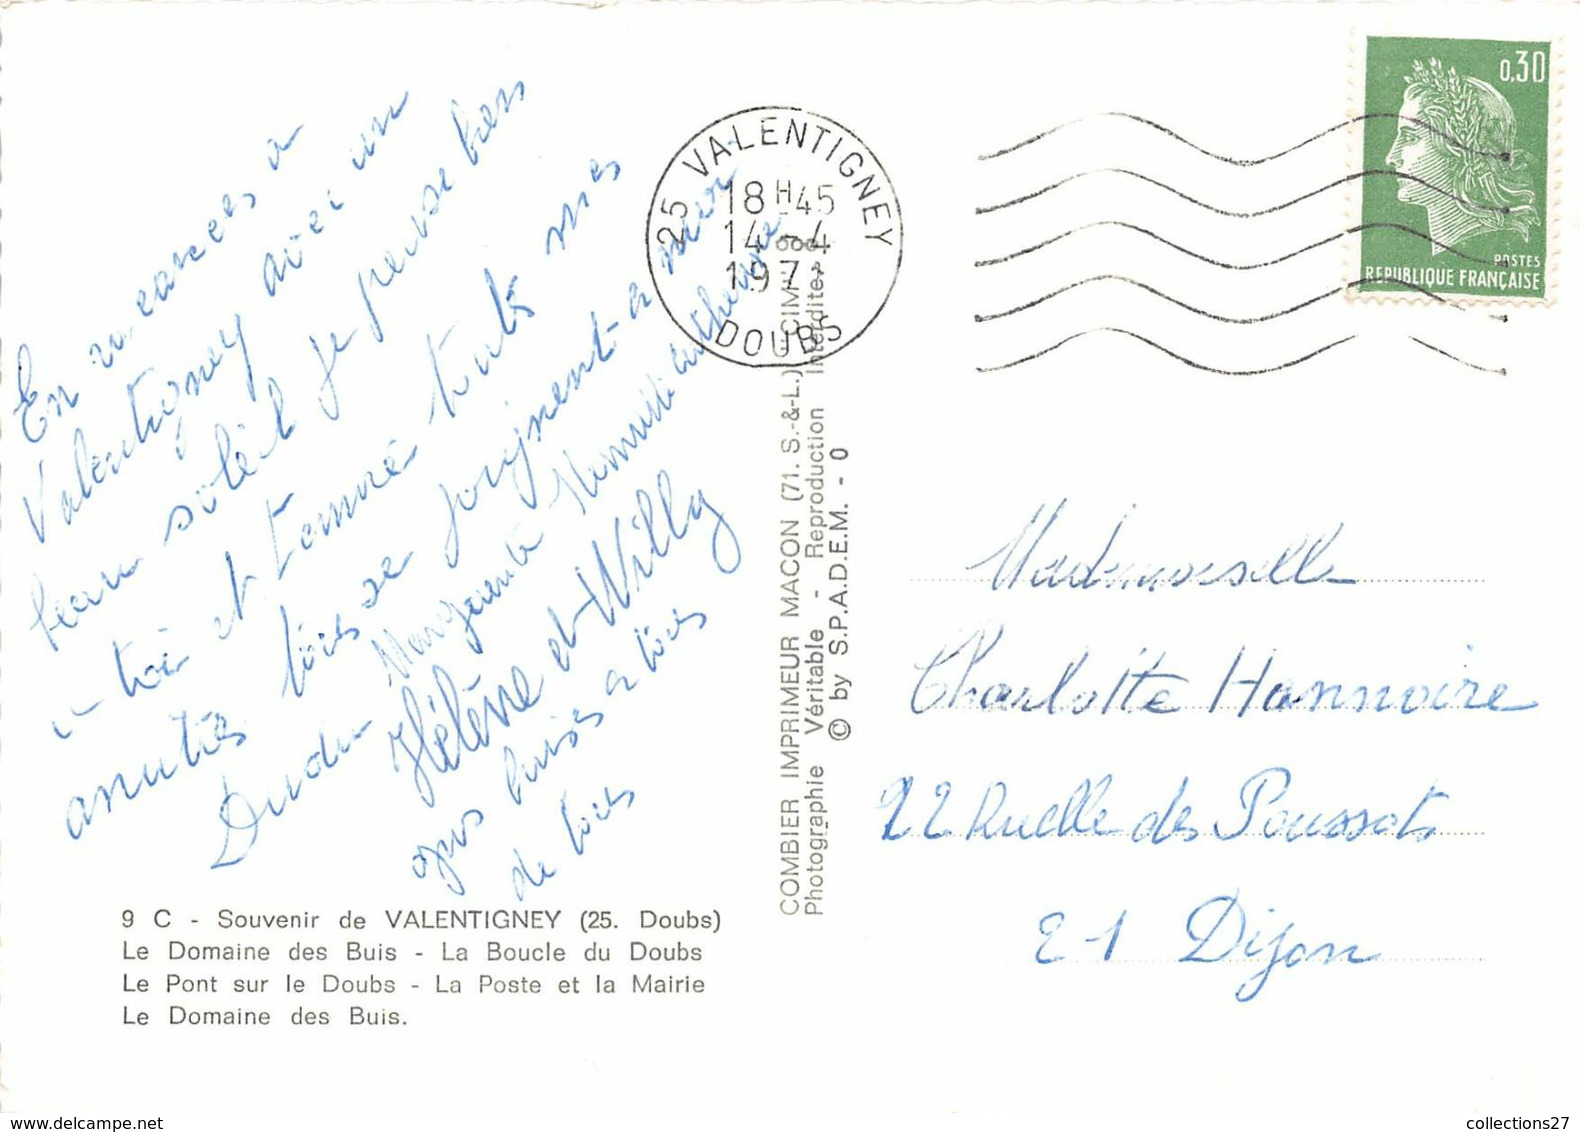 En vacances à
Valentigney avec un
beau soleil je pense bien
à toi et t'envoie touts mes
amitiés tous se joignent à moi
Dudu Marguerite
Hélène et Willy
gros bises à tous
de tous
9 C - Souvenir de VALENTIGNEY (25. Doubs)
Le Domaine des Buis - La Boucle du Doubs
Le Pont sur le Doubs - La Poste et la Mairie
Le Domaine des Buis.
COMBIER IMPRIMEUR MACON (71. S.-&-L.) CIM
Photographie Véritable - Reproduction Interdite
© by S.P.A.D.E.M. - 0
25 VALENTIGNEY
18 H 45
14 - 4
197
DOUBS
0,30
POSTES
REPUBLIQUE FRANÇAISE
Mademoiselle
Charlotte Hannoire
22 Ruelle des Poussots
21 Dijon
collections27